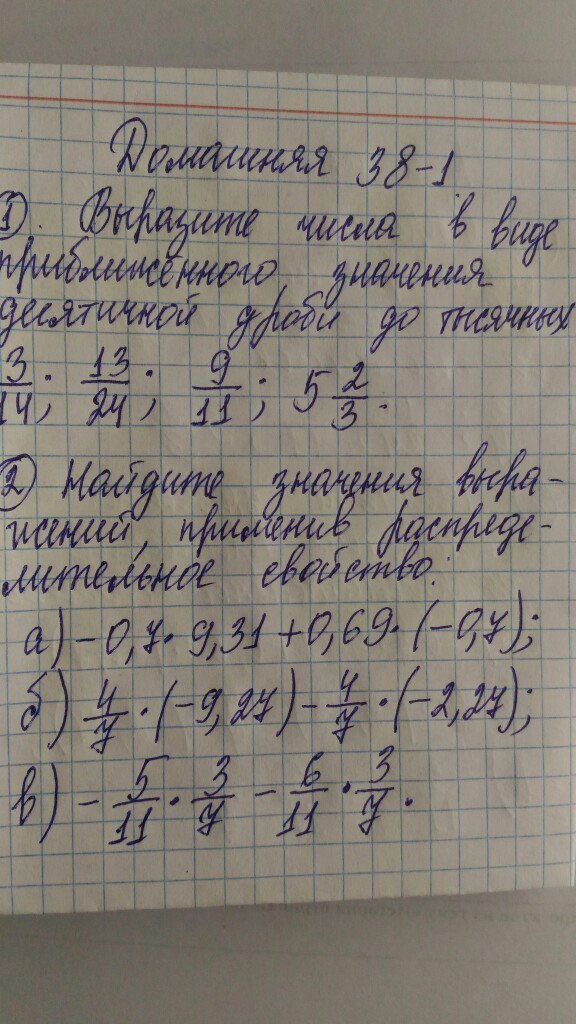 Домашняя 38-1
① Выразите числа в виде
приближённого значения
десятичной дроби до тысячных
3/14; 13/24; 9/11; 5 2/3.
② Найдите значения выра-
жений, применив распреде-
лительное свойство:
а) -0,7·9,31+0,69·(-0,7);
б) 4/7·(-9,27)-4/7·(-2,27);
в) -5/11·3/7-6/11·3/7.